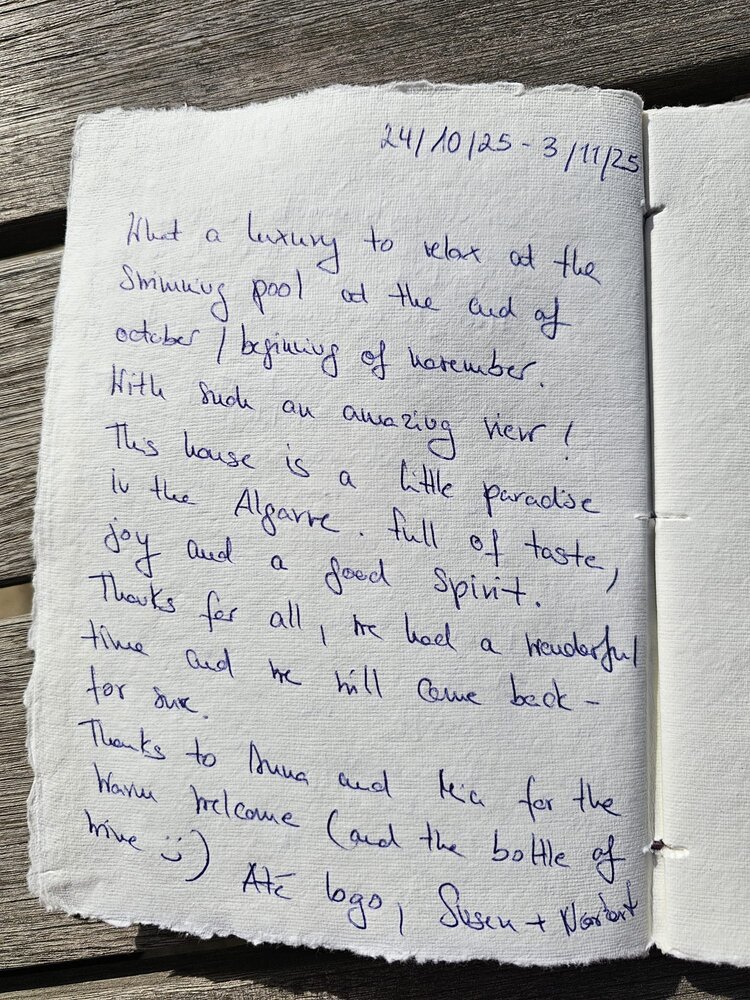 24/10/25 - 3/11/25
What a luxury to relax at the
Swimming pool at the end of
october / beginning of november.
With such an amazing view!
This house is a little paradise
in the Algarve. full of taste,
joy and a good spirit.
Thanks for all, we had a wonderful
time and we will come back -
for sure.
Thanks to Anna and Mia for the
warm welcome (and the bottle of
wine :-)) Até logo, Susen + Norbert